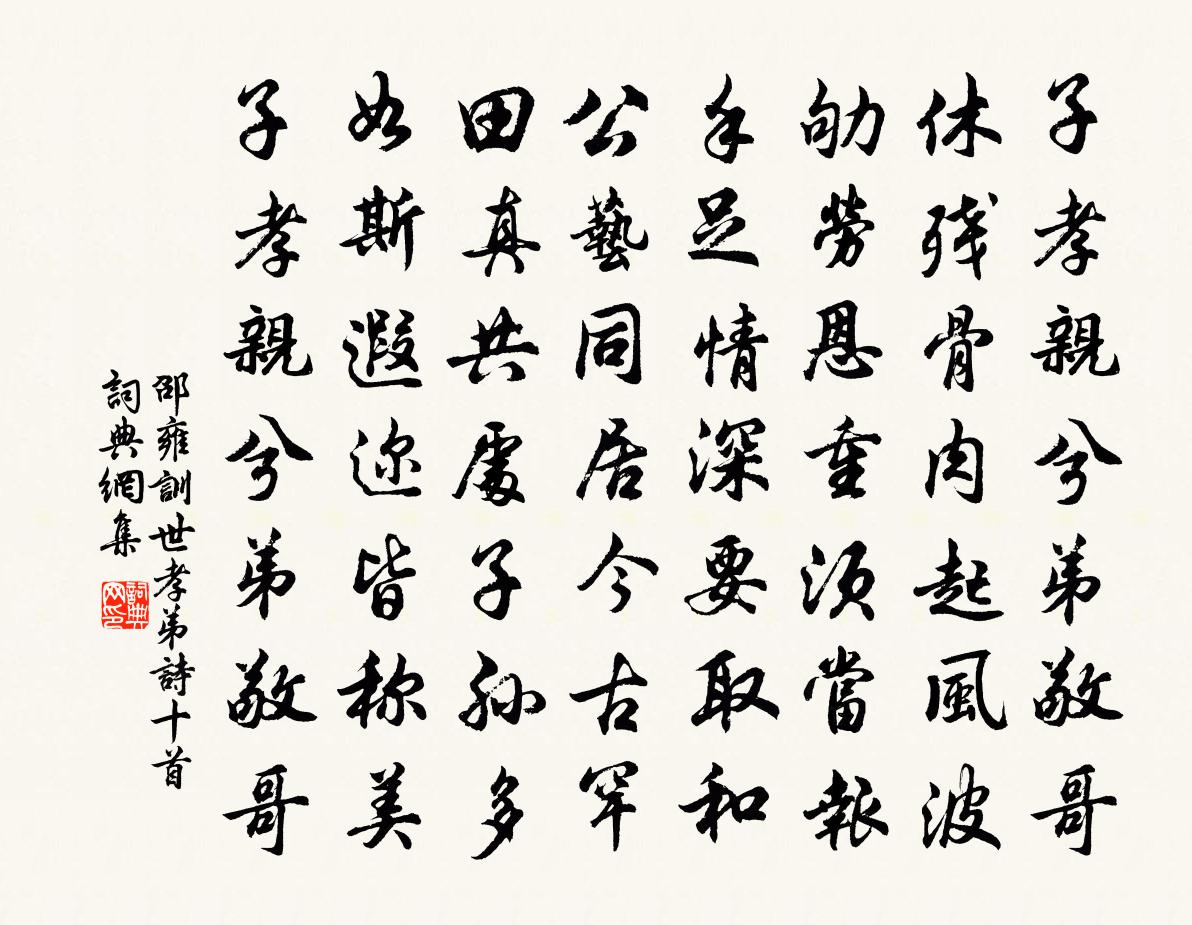 子孝親兮弟敬哥
休殘骨肉起風波
劬勞恩重須當報
手足情深要取和
公藝同居今古罕
田真共處子孫多
如斯遐迩皆称美
子孝親兮弟敬哥
邵雍訓世孝弟詩十首
詞典網集
詞典网印